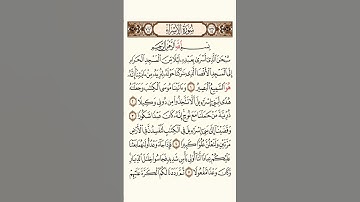 سُورَةُ الإِسْرَاءِ
بِسْمِ اللَّهِ الرَّحْمَٰنِ الرَّحِيمِ
سُبْحَٰنَ الَّذِي أَسْرَىٰ بِعَبْدِهِ لَيْلًا مِّنَ الْمَسْجِدِ الْحَرَامِ
إِلَى الْمَسْجِدِ الْأَقْصَا الَّذِي بَٰرَكْنَا حَوْلَهُ لِنُرِيَهُ مِنْ ءَايَٰتِنَا إِنَّهُ
هُوَ السَّمِيعُ الْبَصِيرُ ١ وَءَاتَيْنَا مُوسَى الْكِتَٰبَ وَجَعَلْنَٰهُ
هُدًى لِّبَنِي إِسْرَٰٓءِيلَ أَلَّا تَتَّخِذُوا مِن دُونِي وَكِيلًا ٢
ذُرِّيَّةَ مَنْ حَمَلْنَا مَعَ نُوحٍ إِنَّهُ كَانَ عَبْدًا شَكُورًا ٣
وَقَضَيْنَا إِلَىٰ بَنِي إِسْرَٰٓءِيلَ فِي الْكِتَٰبِ لَتُفْسِدُنَّ فِي الْأَرْضِ
مَرَّتَيْنِ وَلَتَعْلُنَّ عُلُوًّا كَبِيرًا ٤ فَإِذَا جَاءَ وَعْدُ أُولَىٰهُمَا بَعَثْنَا
عَلَيْكُمْ عِبَادًا لَّنَا أُولِي بَأْسٍ شَدِيدٍ فَجَاسُوا خِلَٰلَ الدِّيَارِ
وَكَانَ وَعْدًا مَّفْعُولًا ٥ ثُمَّ رَدَدْنَا لَكُمُ الْكَرَّةَ عَلَيْهِمْ